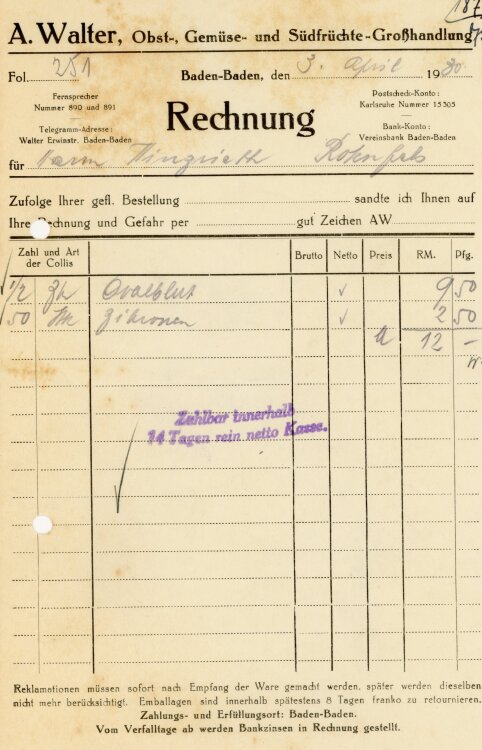 187
A. Walter, Obst-, Gemüse- und Südfrüchte-Großhandlung
Fol. 251 Baden-Baden, den 3. April 1930
Fernsprecher
Nummer 890 und 891
Telegramm-Adresse:
Walter Erwinstr. Baden-Baden
Rechnung
Postscheck-Konto:
Karlsruhe Nummer 15305
Bank-Konto:
Vereinsbank Baden-Baden
für Rotenfels
Zufolge Ihrer gefl. Bestellung sandte ich Ihnen auf
Ihre Rechnung und Gefahr per gut Zeichen AW
Zahl und Art der Collis Brutto Netto Preis RM. Pfg.
1/2 Ovalblut 9 50
50 Stk Zitronen 2 50
12 –
Zahlbar innerhalb
14 Tagen rein netto Kasse.
Reklamationen müssen sofort nach Empfang der Ware gemacht werden, später werden dieselben
nicht mehr berücksichtigt. Emballagen sind innerhalb spätestens 8 Tagen franko zu retournieren.
Zahlungs- und Erfüllungsort: Baden-Baden.
Vom Verfalltage ab werden Bankzinsen in Rechnung gestellt.